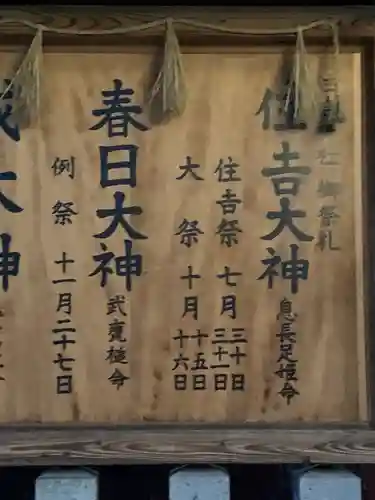 社御祭礼
住吉大神 息長足姫命
住吉祭 七月 三十日 三十一日
大祭 十月 十五日 十六日
春日大神 武甕槌命
例祭 十一月二十七日
大神